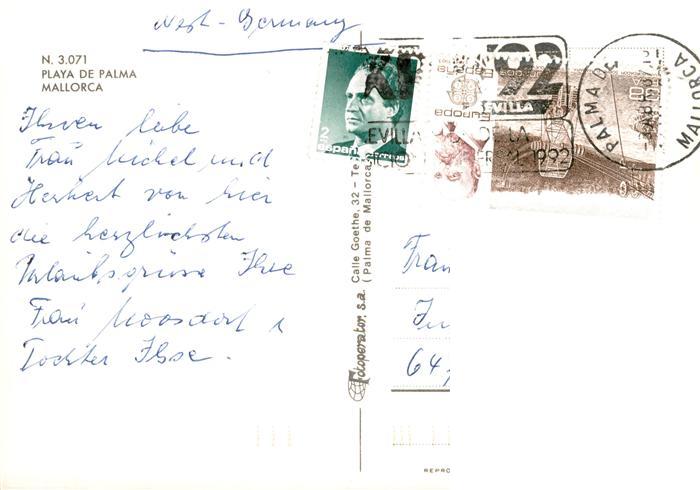 West-Germany
N. 3.071
PLAYA DE PALMA
MALLORCA
Ihnen liebe
Frau Michel und
Herbert von hier
die herzlichsten
Urlaubsgrüsse Ihre
Frau Moosdorf u
Tochter Ilse.
2
españa
Europa
España
SEVILLA
1992
PALMA DE MALLORCA
Fotoperator, s.a. Calle Goethe, 32 - Te
(Palma de Mallorca
Frau
64
REPRO